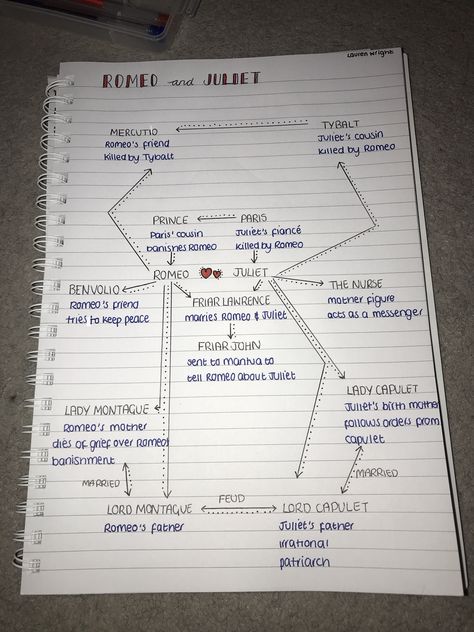 Lauren Wright
ROMEO and JULIET
MERCUTIO
Romeo's friend
killed by Tybalt
TYBALT
Juliet's cousin
killed by Romeo
PRINCE
Paris' cousin
banishes Romeo
PARIS
Juliet's fiancé
killed by Romeo
ROMEO
JULIET
BENVOLIO
Romeo's friend
tries to keep peace
FRIAR LAWRENCE
marries Romeo & Juliet
THE NURSE
mother figure
acts as a messenger
FRIAR JOHN
sent to mantua to
tell Romeo about Juliet
LADY MONTAGUE
Romeo's mother
dies of grief over Romeo
banishment
LADY CAPULET
Juliet's birth mother
follows orders from
capulet
MARRIED
MARRIED
LORD MONTAGUE
Romeo's father
FEUD
LORD CAPULET
Juliet's father
irrational
patriarch